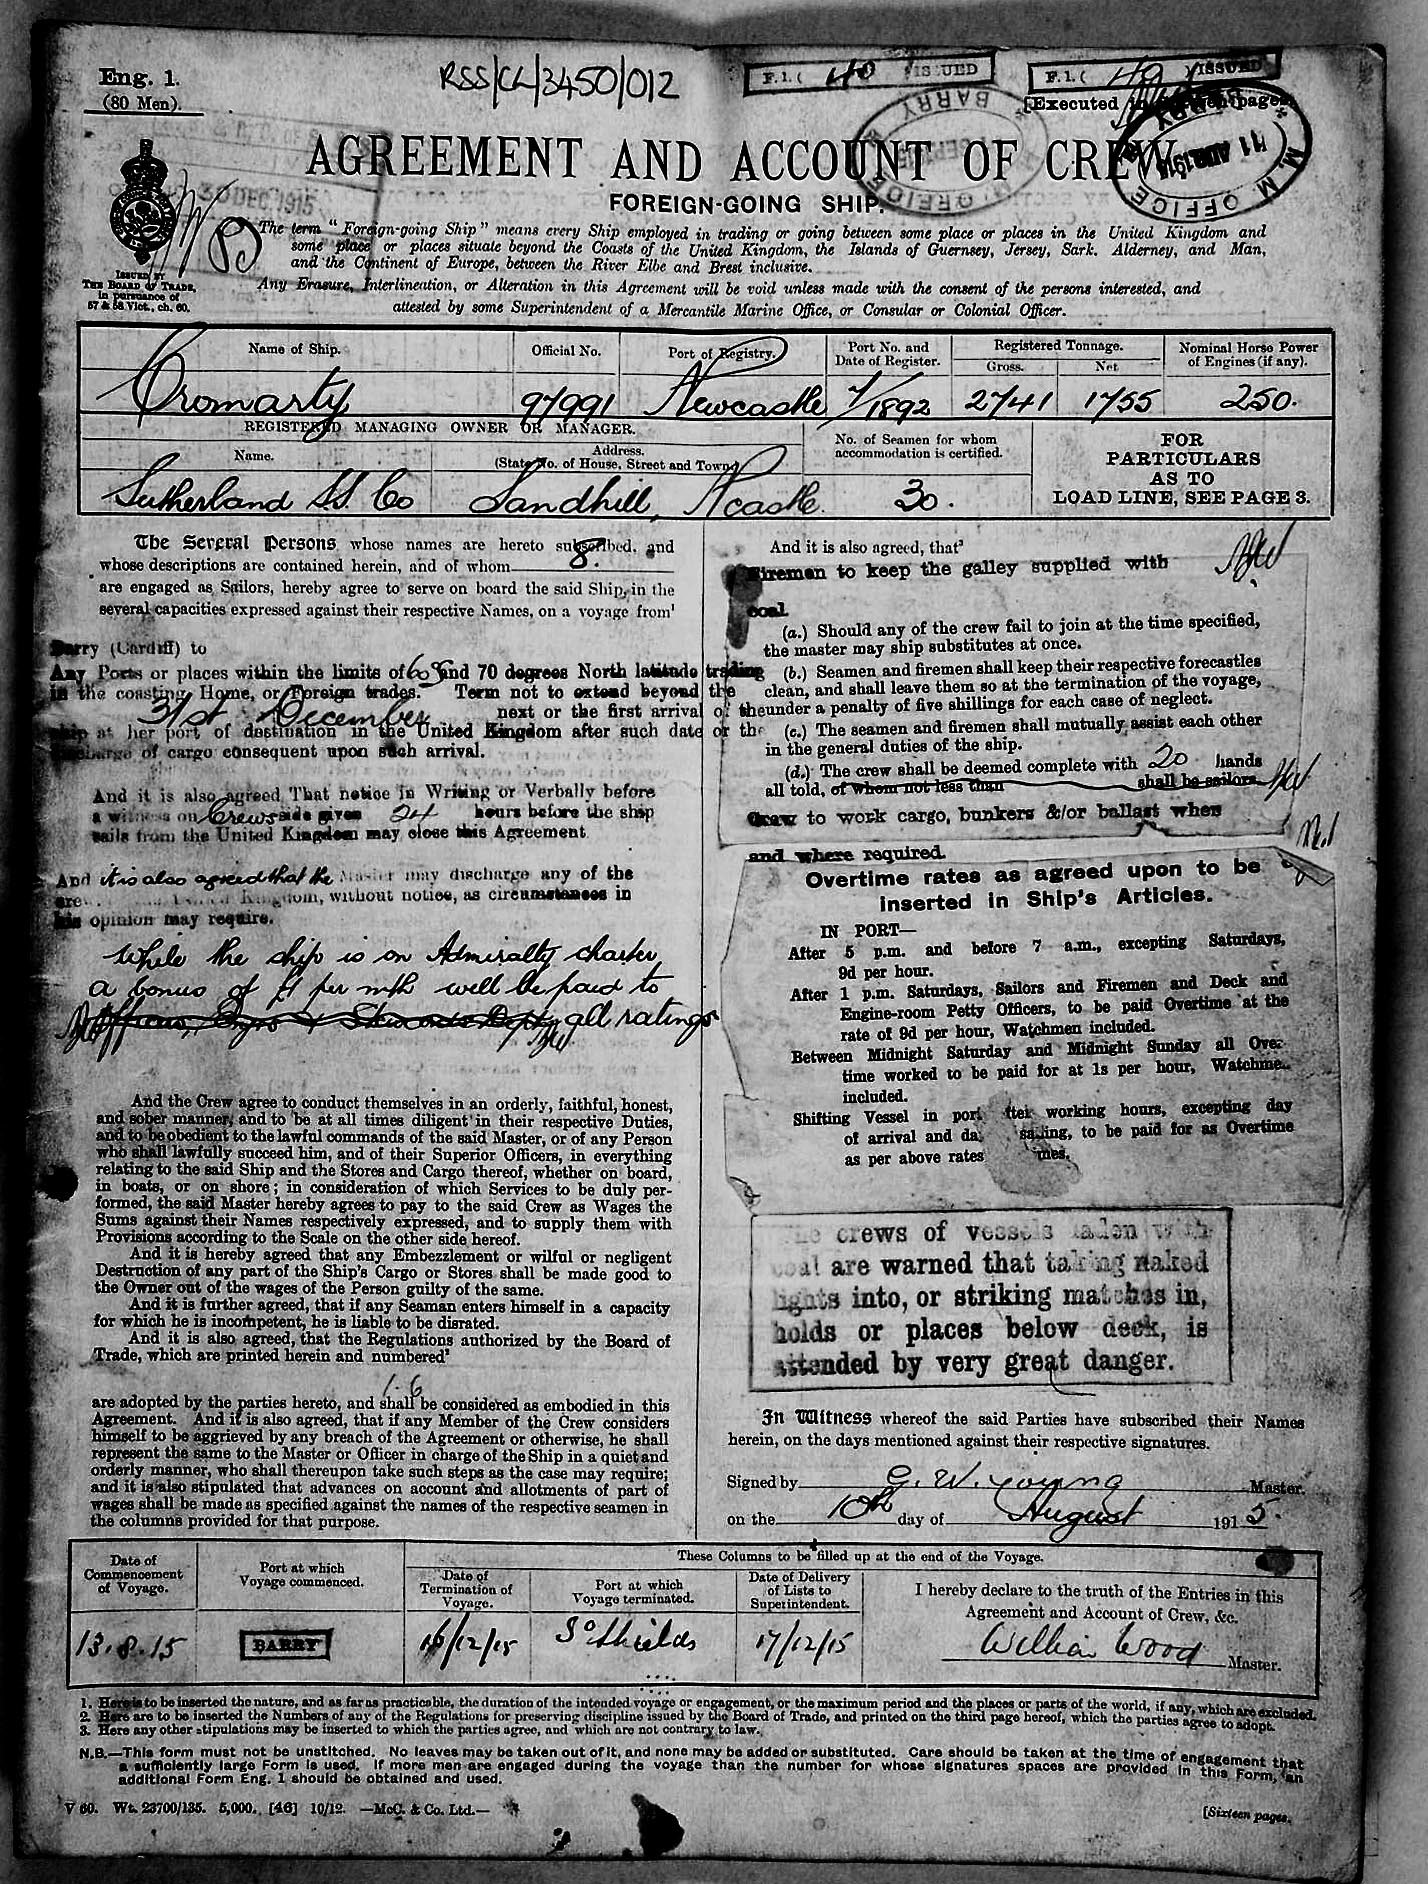 Eng. 1.
(80 Men).
RSS/CL/3450/012
F.1. ( 40 ) ISSUED
F.1. ( 40 ) ISSUED
[Executed in pages.
BARRY
M. M. OFFICE BARRY
11 AUG 1915
30 DEC. 1915
AGREEMENT AND ACCOUNT OF CREW
FOREIGN-GOING SHIP.
ISSUED BY
THE BOARD OF TRADE,
in pursuance of
57 & 58 Vict., ch. 60.
The term "Foreign-going Ship" means every Ship employed in trading or going between some place or places in the United Kingdom and
some place or places situate beyond the Coasts of the United Kingdom, the Islands of Guernsey, Jersey, Sark, Alderney, and Man,
and the Continent of Europe, between the River Elbe and Brest inclusive.
Any Erasure, Interlineation, or Alteration in this Agreement will be void unless made with the consent of the persons interested, and
attested by some Superintendent of a Mercantile Marine Office, or Consular or Colonial Officer.
Name of Ship. Official No. Port of Registry. Port No. and Date of Register. Registered Tonnage. Gross. Net. Nominal Horse Power of Engines (if any).
Cromarty 97991 Newcastle 7/1892 2741 1755 250.
REGISTERED MANAGING OWNER OR MANAGER.
Name. Address. (State No. of House, Street and Town.) No. of Seamen for whom accommodation is certified.
Sutherland S.S. Co Sandhill, Ncastle. 30.
FOR
PARTICULARS
AS TO
LOAD LINE, SEE PAGE 3.
The Several Persons whose names are hereto subscribed, and
whose descriptions are contained herein, and of whom 8.
are engaged as Sailors, hereby agree to serve on board the said Ship, in the
several capacities expressed against their respective Names, on a voyage from¹
Barry (Cardiff) to
Any Ports or places within the limits of 60 S and 70 degrees North latitude trading
in the coasting, Home, or Foreign trades. Term not to extend beyond the
31st December next or the first arrival of the
ship at her port of destination in the United Kingdom after such date or the
discharge of cargo consequent upon such arrival.
And it is also agreed That notice in Writing or Verbally before
a witness on Crews side given 24 hours before the ship
sails from the United Kingdom may close this Agreement
And it is also agreed that the Master may discharge any of the
Kingdom, without notice, as circumstances in
his opinion may require.
While the ship is on Admiralty charter
a bonus of £1 per mth will be paid to
Officers, Engrs & Stewards Dept, all ratings
And the Crew agree to conduct themselves in an orderly, faithful, honest,
and sober manner, and to be at all times diligent in their respective Duties,
and to be obedient to the lawful commands of the said Master, or of any Person
who shall lawfully succeed him, and of their Superior Officers, in everything
relating to the said Ship and the Stores and Cargo thereof, whether on board,
in boats, or on shore; in consideration of which Services to be duly per-
formed, the said Master hereby agrees to pay to the said Crew as Wages the
Sums against their Names respectively expressed, and to supply them with
Provisions according to the Scale on the other side hereof.
And it is hereby agreed that any Embezzlement or wilful or negligent
Destruction of any part of the Ship's Cargo or Stores shall be made good to
the Owner out of the wages of the Person guilty of the same.
And it is further agreed, that if any Seaman enters himself in a capacity
for which he is incompetent, he is liable to be disrated.
And it is also agreed, that the Regulations authorized by the Board of
Trade, which are printed herein and numbered²
1. 6
are adopted by the parties hereto, and shall be considered as embodied in this
Agreement. And it is also agreed, that if any Member of the Crew considers
himself to be aggrieved by any breach of the Agreement or otherwise, he shall
represent the same to the Master or Officer in charge of the Ship in a quiet and
orderly manner, who shall thereupon take such steps as the case may require;
and it is also stipulated that advances on account and allotments of part of
wages shall be made as specified against the names of the respective seamen in
the columns provided for that purpose.
And it is also agreed, that³
Firemen to keep the galley supplied with
coal
(a.) Should any of the crew fail to join at the time specified,
the master may ship substitutes at once.
(b.) Seamen and firemen shall keep their respective forecastles
clean, and shall leave them so at the termination of the voyage,
under a penalty of five shillings for each case of neglect.
(c.) The seamen and firemen shall mutually assist each other
in the general duties of the ship.
(d.) The crew shall be deemed complete with 20 hands
all told, of whom not less than shall be sailors
Crew to work cargo, bunkers &/or ballast when
and where required
Overtime rates as agreed upon to be
inserted in Ship's Articles.
IN PORT—
After 5 p.m. and before 7 a.m., excepting Saturdays,
9d per hour.
After 1 p.m. Saturdays, Sailors and Firemen and Deck and
Engine-room Petty Officers, to be paid Overtime at the
rate of 9d per hour, Watchmen included.
Between Midnight Saturday and Midnight Sunday all Over-
time worked to be paid for at 1s per hour, Watchme
included.
Shifting Vessel in port after working hours, excepting day
of arrival and day sailing, to be paid for as Overtime
as per above rates
The crews of vessels laden with
coal are warned that taking naked
lights into, or striking matches in,
holds or places below deck, is
attended by very great danger.
In Witness whereof the said Parties have subscribed their Names
herein, on the days mentioned against their respective signatures.
Signed by G. W. Young Master.
on the 10th day of August 1915.
Date of Commencement of Voyage. Port at which Voyage commenced. These Columns to be filled up at the end of the Voyage.
Date of Termination of Voyage. Port at which Voyage terminated. Date of Delivery of Lists to Superintendent.
I hereby declare to the truth of the Entries in this
Agreement and Account of Crew, &c.
13.8.15 BARRY 16/12/15 So Shields 17/12/15 William Wood Master.
1. Here is to be inserted the nature, and as far as practicable, the duration of the intended voyage or engagement, or the maximum period and the places or parts of the world, if any, which are excluded.
2. Here are to be inserted the Numbers of any of the Regulations for preserving discipline issued by the Board of Trade, and printed on the third page hereof, which the parties agree to adopt.
3. Here any other stipulations may be inserted to which the parties agree, and which are not contrary to law.
N.B.—This form must not be unstitched. No leaves may be taken out of it, and none may be added or substituted. Care should be taken at the time of engagement that
a sufficiently large Form is used. If more men are engaged during the voyage than the number for whose signatures spaces are provided in this Form, an
additional Form Eng. 1 should be obtained and used.
V 60. Wt. 23700/135. 5,000. [46] 10/12. —McC. & Co. Ltd.—
[Sixteen pages.